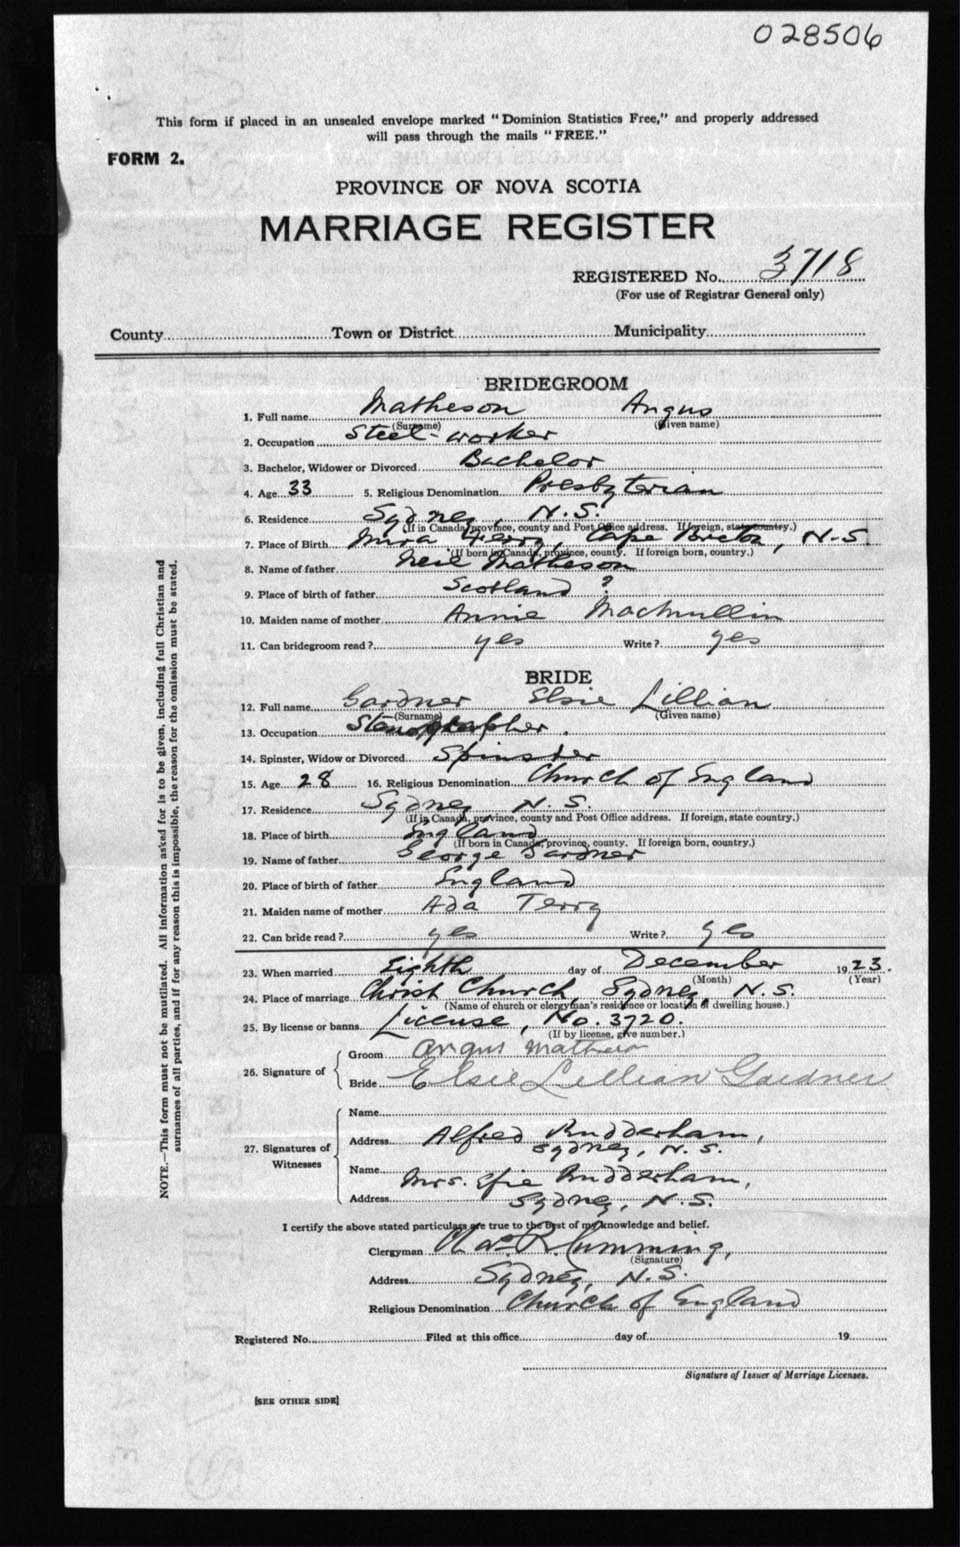 028506
This form if placed in an unsealed envelope marked "Dominion Statistics Free," and properly addressed
will pass through the mails "FREE."
FORM 2.
PROVINCE OF NOVA SCOTIA
MARRIAGE REGISTER
REGISTERED No. 3718
(For use of Registrar General only)
County Town or District Municipality
BRIDEGROOM
1. Full name Matheson Angus
(Surname) (Given name)
2. Occupation Steel-worker
3. Bachelor, Widower or Divorced Bachelor
4. Age 33 5. Religious Denomination Presbyterian
6. Residence Sydney, N.S.
(If in Canada, province, county and Post Office address. If foreign, state country.)
7. Place of Birth Mira Ferry, Cape Breton, N.S.
(If born in Canada, province, county. If foreign born, country.)
8. Name of father Neil Matheson
9. Place of birth of father Scotland ?
10. Maiden name of mother Annie MacMullin
11. Can bridegroom read? yes Write? yes
BRIDE
12. Full name Gardner Elsie Lillian
(Surname) (Given name)
13. Occupation Stenographer.
14. Spinster, Widow or Divorced Spinster
15. Age 28 16. Religious Denomination Church of England
17. Residence Sydney N.S.
(If in Canada, province, county and Post Office address. If foreign, state country.)
18. Place of birth England
(If born in Canada, province, county. If foreign born, country.)
19. Name of father George Gardner
20. Place of birth of father England
21. Maiden name of mother Ada Terry
22. Can bride read? yes Write? yes
23. When married Eighth day of December 1923.
(Month) (Year)
24. Place of marriage Christ Church, Sydney, N.S.
(Name of church or clergyman's residence or location of dwelling house.)
25. By license or banns License, No. 3720.
(If by license, give number.)
26. Signature of
Groom Angus Matheson
Bride Elsie Lillian Gardner
27. Signatures of Witnesses
Name
Address Alfred Rudderham,
Sydney, N.S.
Name Mrs. Efie Rudderham,
Address Sydney, N.S.
I certify the above stated particulars are true to the best of my knowledge and belief.
Clergyman Chas. R. Cumming,
(Signature)
Address Sydney, N.S.
Religious Denomination Church of England
Registered No. Filed at this office day of 19
Signature of Issuer of Marriage Licenses.
[SEE OTHER SIDE]
NOTE.—This form must not be mutilated. All information asked for is to be given, including full Christian and
surnames of all parties, and if for any reason this is impossible, the reason for the omission must be stated.